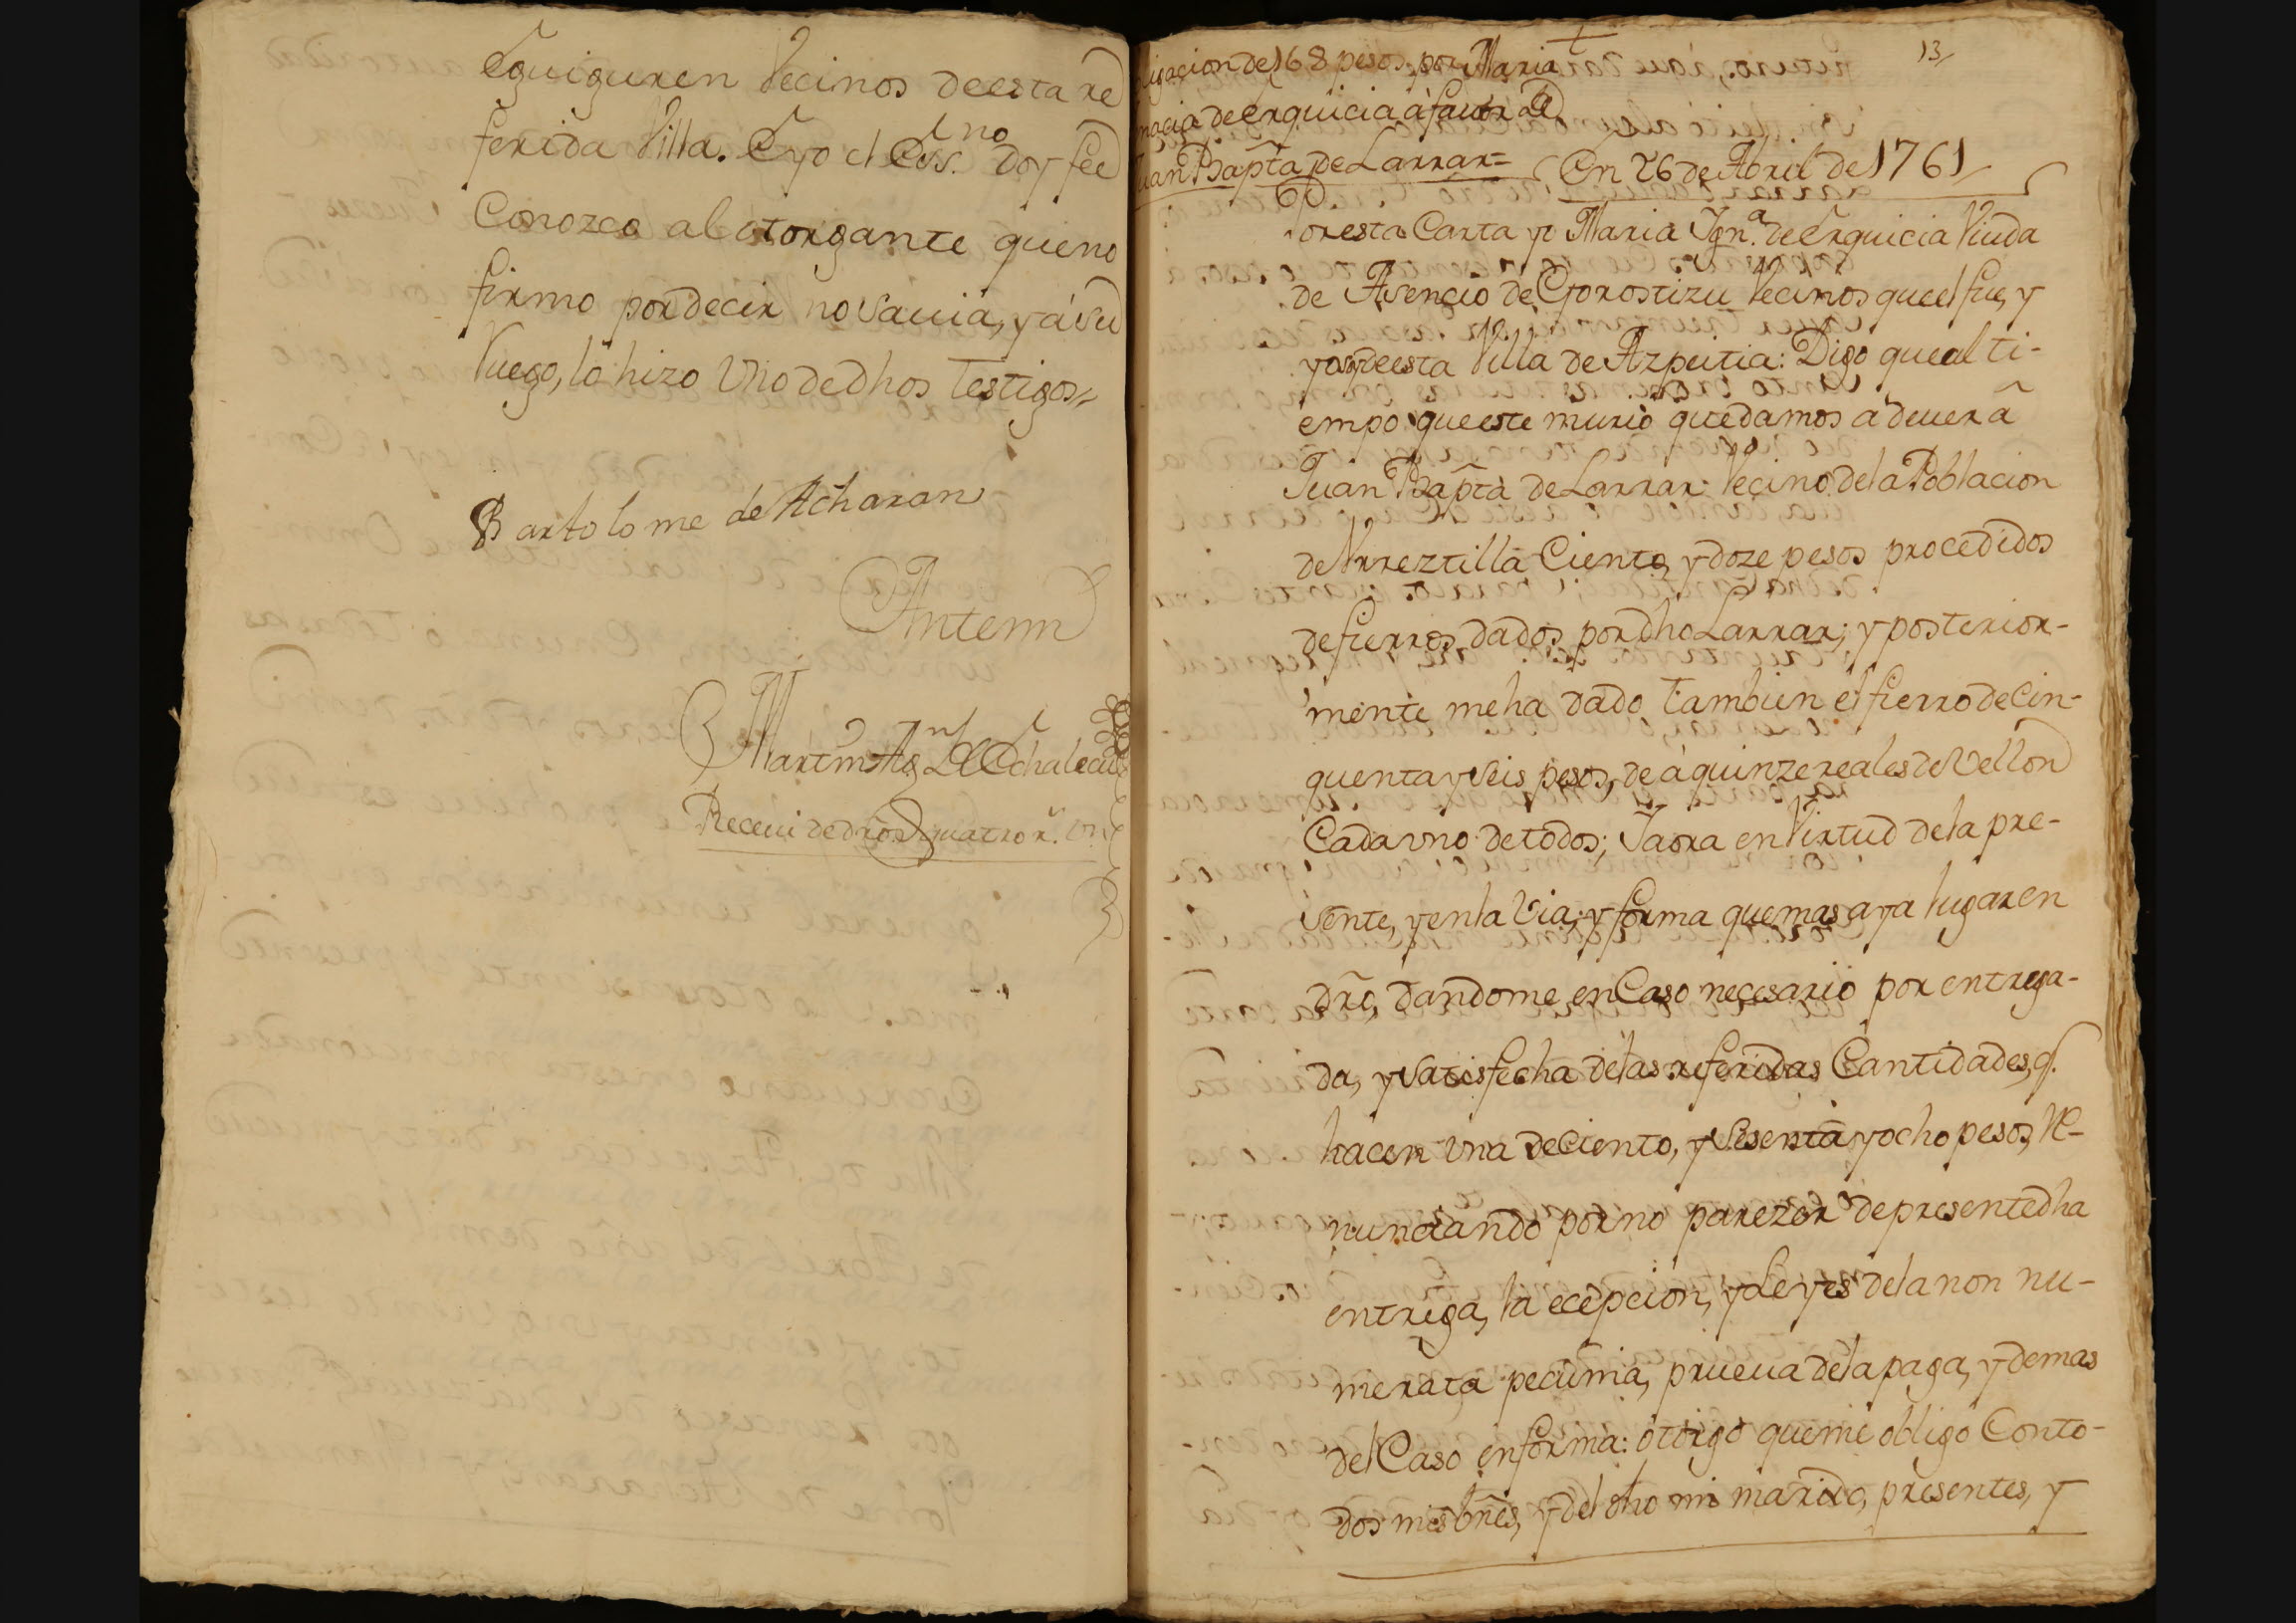 Eguiguren Vecinos de esta re
ferida Villa. E yo el Ess.no doy fee
Conozco al otorgante que no
firmo por decir no savia, y á su
Ruego, lo hizo Uno de dhos testigos
Bartolome de Acharan
Antemi
Martin Ag.n de Echalecu
Receui de dros quatro r.s vn
13
ligacion de 168 pesos por Maria
nacia de Erquicia à favor de
Juan Bapta de Larrar=
En 26 de Abril de 1761
Por esta Carta yo Maria Ign.a de Erquicia Viuda
de Asencio de Gorostizu Vecinos que el fue, y
yo soy de esta Villa de Azpeitia: Digo que al ti-
empo que este murio quedamos a dever â
Juan Bapta de Larrar Vecino de la Poblacion
de Urreztilla Ciento, y doze pesos procedidos
de fierros dados por dho Larrar; y posterior-
mente me ha dado tambien el fierro de Cin-
quenta y seis pesos, de à quinze reales de Vellon
Cada uno de todos; Y aora en Virtud de la pre-
sente, y en la Via, y forma que mas aya lugar en
dro, dandome en Caso necesario por entrega-
da, y satisfecha de las referidas Cantidades, q.
hacen una de Ciento, y sesenta y ocho pesos, Re-
nunciando por no parezer de presente dha
entrega, la ecepcion, y Leyes de la non nu-
merata pecunia, prueua de la paga, y demas
del Caso en forma: otorgo que me obligo Con to-
dos mis bnēs, y del dho mi marido, presentes, y